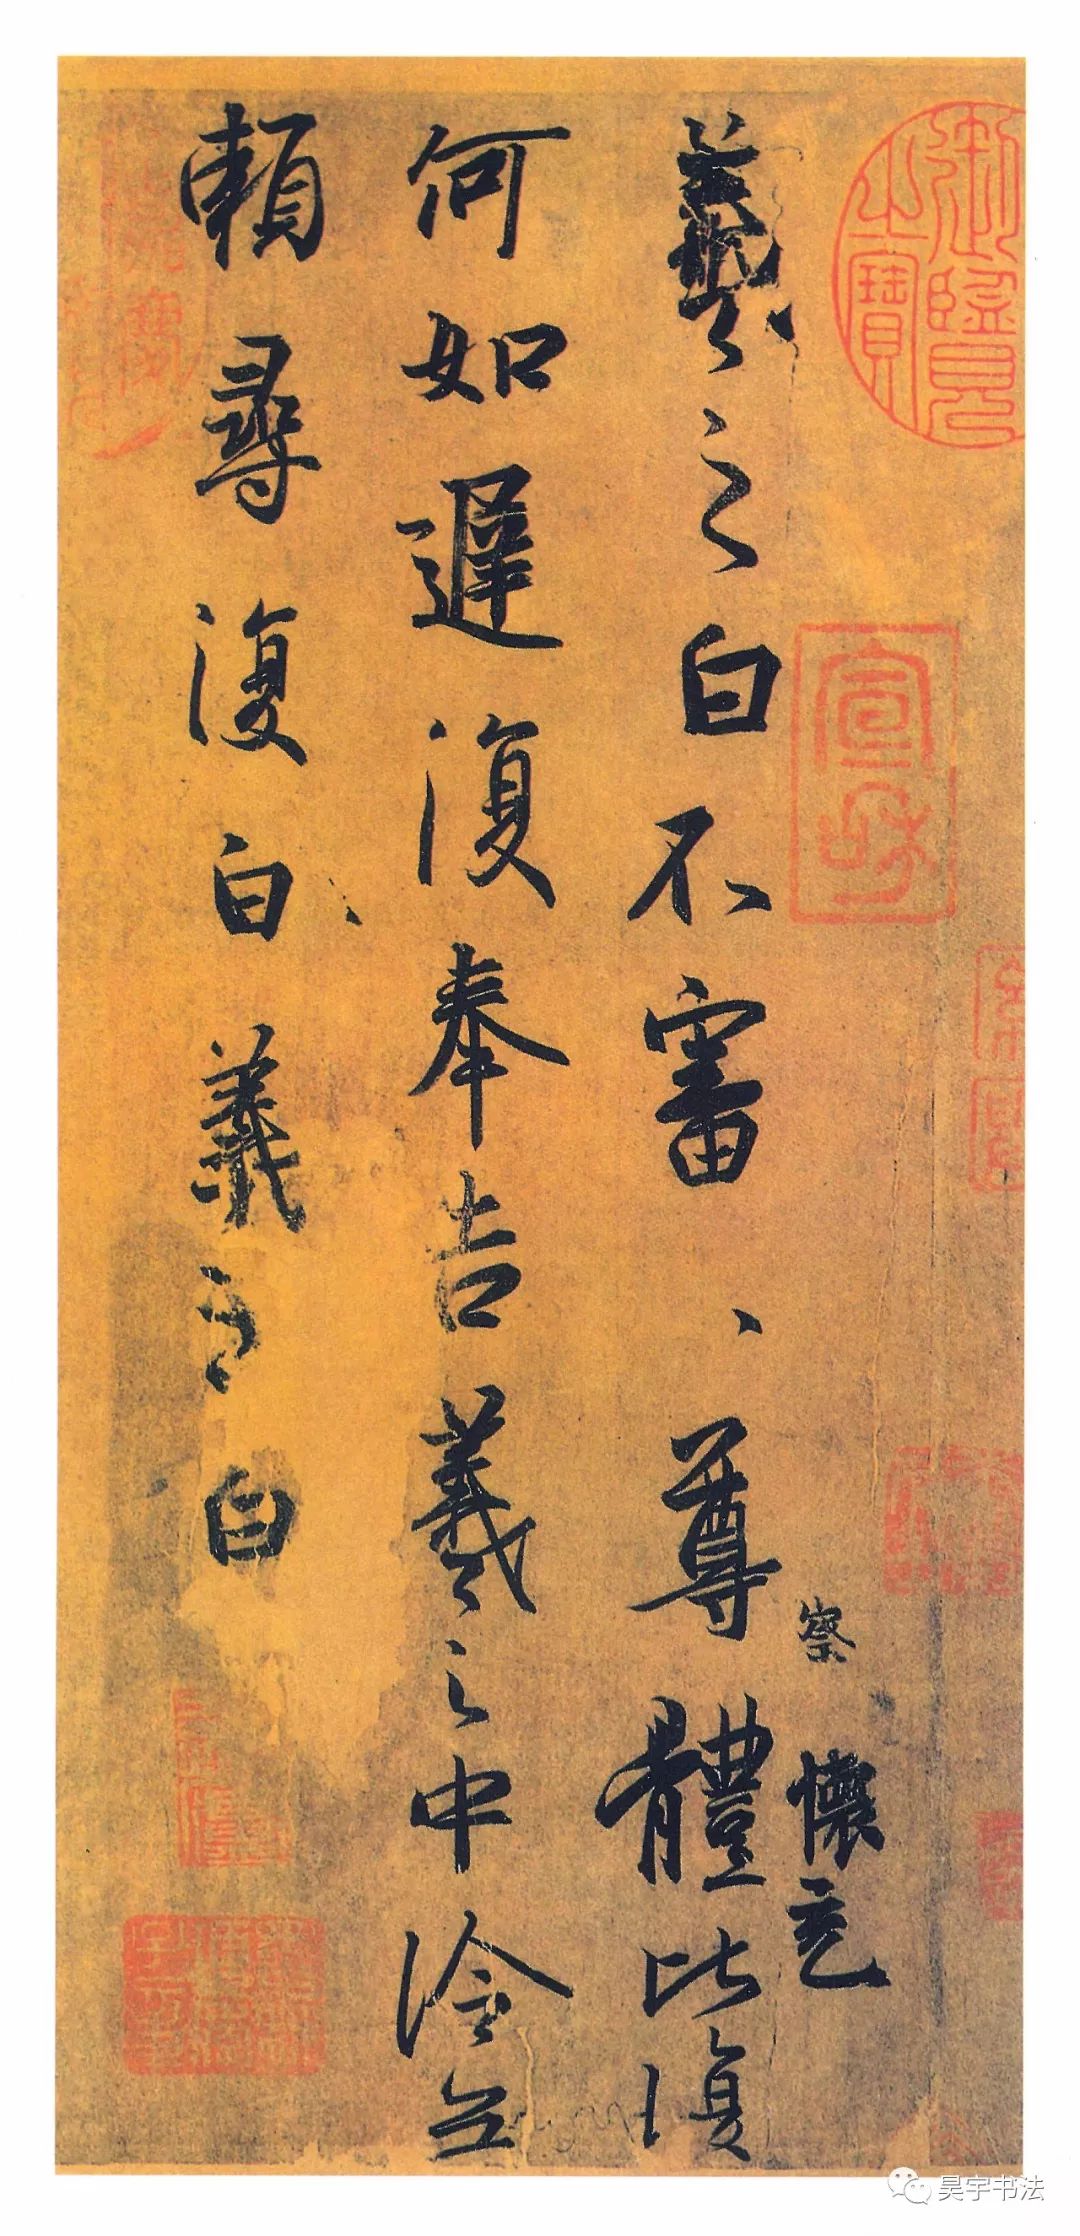 羲之白不審、尊體比復
何如遲復奉告羲之中冷無
賴尋復白羲之白
察
懷充
御府
宣和
昊宇书法